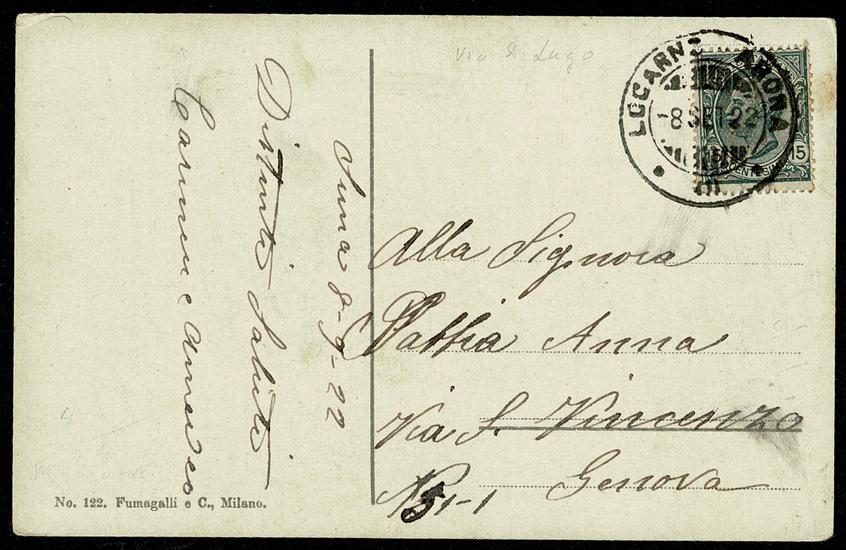 Via di Lugo
LOCARNO ARONA
-8 SET 22
15
CENTESIMI
Suna 8-9-22
Distinti Saluti
Carmen e Amedeo
Alla Signora
Pattia Anna
Via S. Vincenzo
N. 51-1
Genova
No. 122. Fumagalli e C., Milano.